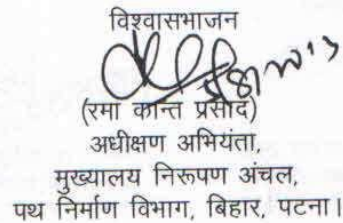 विश्वासभाजन
(रमा कान्त प्रसाद)
अधीक्षण अभियंता,
मुख्यालय निरूपण अंचल,
पथ निर्माण विभाग, बिहार, पटना।